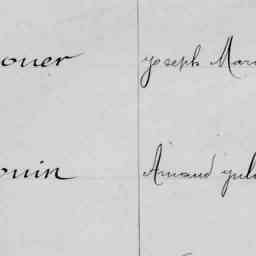 ouer Joseph Mar
ouin Arnaud Jul